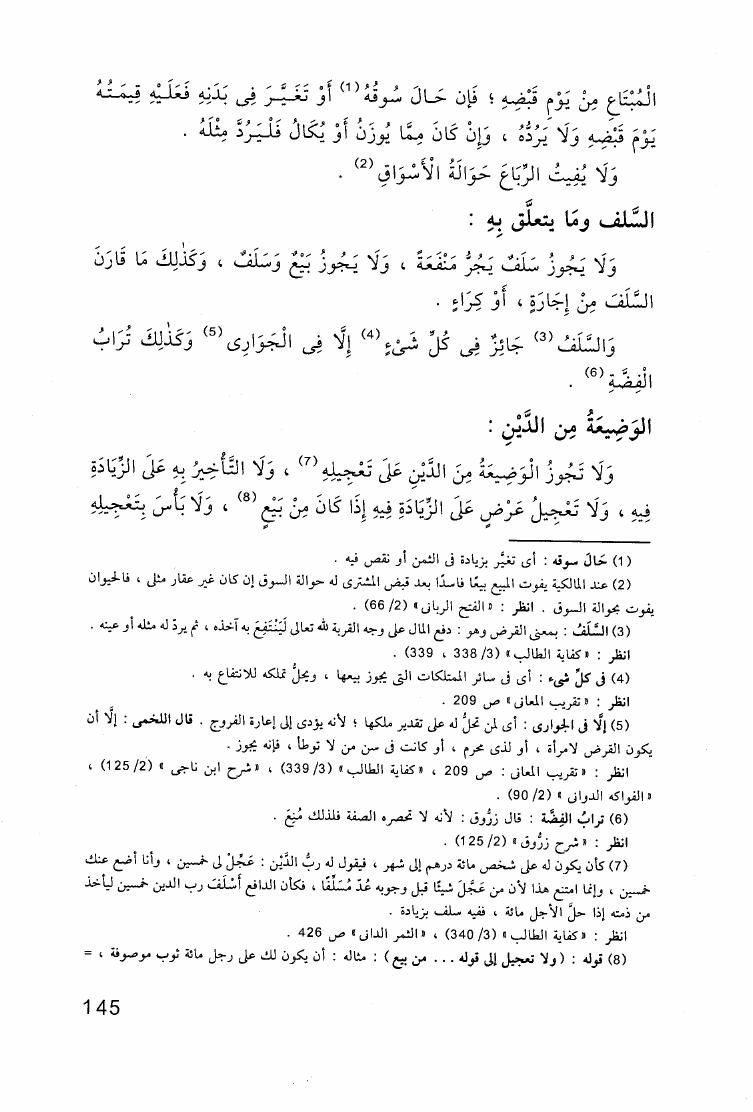 الْمُبْتَاعِ مِنْ يَوْمِ قَبْضِهِ ؛ فَإِن حَالَ سُوقُهُ (1) أَوْ تَغَيَّرَ فِى بَدَنِهِ فَعَلَيْهِ قِيمَتُهُ
يَوْمَ قَبْضِهِ وَلَا يَرُدُّهُ ، وَإِنْ كَانَ مِمَّا يُوزَنُ أَوْ يُكَالُ فَلْيَرُدَّ مِثْلَهُ .
وَلَا يُفِيتُ الرِّبَاعَ حَوَالَةُ الْأَسْوَاقِ (2) .
السَّلف ومَا يتعلَّق بِهِ :
وَلَا يَجُوزُ سَلَفٌ يَجُرُّ مَنْفَعَةً ، وَلَا يَجُوزُ بَيْعٌ وَسَلَفٌ ، وَكَذٰلِكَ مَا قَارَنَ
السَّلَفَ مِنْ إِجَارَةٍ ، أَوْ كِرَاءٍ .
وَالسَّلَفُ (3) جَائِزٌ فِى كُلِّ شَىْءٍ (4) إِلَّا فِى الْجَوَارِى (5) وَكَذٰلِكَ تُرَابُ
الْفِضَّةِ (6) .
الوَضِيعَةُ مِن الدَّيْنِ :
وَلَا تَجُوزُ الْوَضِيعَةُ مِنَ الدَّيْنِ عَلَى تَعْجِيلِهِ (7) ، وَلَا التَّأْخِيرُ بِهِ عَلَى الزِّيَادَةِ
فِيهِ ، وَلَا تَعْجِيلُ عَرْضٍ عَلَى الزِّيَادَةِ فِيهِ إِذَا كَانَ مِنْ بَيْعٍ (8) ، وَلَا بَأْسَ بِتَعْجِيلِهِ
(1) حَالَ سوقه : أى تغيَّر بزيادة فى الثمن أو نقص فيه .
(2) عند المالكية يفوت المبيع بيعًا فاسدًا بعد قبض المشترى له حوالة السوق إن كان غير عقار مثلى ، فالحيوان
يفوت بحوالة السوق . انظر : « الفتح الربانى » (2/ 66) .
(3) السَّلَفُ : بمعنى القرض وهو : دفع المال على وجه القربة لله تعالى لَيَنْتَفِعَ به آخذه ، ثم يردّ له مثله أو عينه .
انظر : « كفاية الطالب » (3/ 338 ، 339) .
(4) فى كلِّ شىء : أى فى سائر الممتلكات التى يجوز بيعها ، ويحلُّ تملكه للانتفاع به .
انظر : « تقريب المعانى » ص 209 .
(5) إلَّا فى الجوارى : أى لمن تحلُّ له على تقدير ملكها ؛ لأنه يؤدى إلى إعارة الفروج . قال اللخمى : إلَّا أن
يكون القرض لامرأة ، أو لذى محرم ، أو كانت فى سن من لا توطأ ، فإنه يجوز .
انظر : « تقريب المعانى : ص 209 ، « كفاية الطالب » (3/ 339) ، « شرح ابن ناجى » (2/ 125) ،
« الفواكه الدوانى » (2/ 90) .
(6) ترابُ الفِضَّة : قال زرُّوق : لأنه لا تحصره الصفة فلذلك مُنِعَ .
انظر : « شرح زرُّوق » (2/ 125) .
(7) كأن يكون له على شخص مائة درهم إلى شهر ، فيقول له ربُّ الدَّيْن : عَجِّلْ لى خمسين ، وأنا أضع عنك
خمسين ، وإنما امتنع هذا لأن من عَجَّلَ شيئًا قبل وجوبه عُدّ مُسَلِّفًا ، فكأن الدافع أَسْلَفَ رب الدين خمسين ليأخذ
من ذمته إذا حلَّ الأجل مائة ، ففيه سلف بزيادة .
انظر : « كفاية الطالب » (3/ 340) ، « الثمر الدانى » ص 426 .
(8) قوله : (ولا تعجيل إلى قوله ... من بيع) : مثاله : أن يكون لك على رجل مائة ثوب موصوفة ، =
145